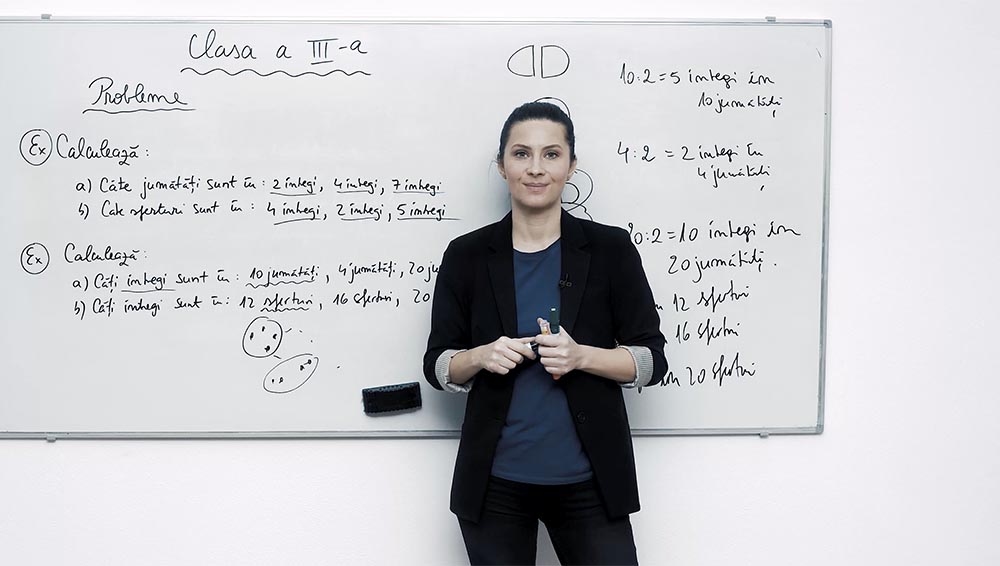 Clasa a III-a
Probleme
Ex Calculează:
a) Câte jumătăți sunt în: 2 întregi, 4 întregi, 7 întregi
b) Câte sferturi sunt în: 4 întregi, 2 întregi, 5 întregi
Ex Calculează:
a) Câți întregi sunt în: 10 jumătăți, 4 jumătăți, 20 ju
b) Câți întregi sunt în: 12 sferturi, 16 sferturi, 20
10:2=5 întregi în
10 jumătăți
4:2 = 2 întregi în
4 jumătăți
0:2=10 întregi în
20 jumătăți.
12 sferturi
16 sferturi
în 20 sferturi